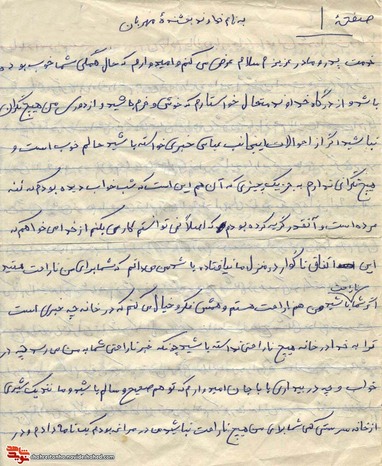 صفحهٔ ۱
به نام خداوند بخشندهٔ مهربان
خدمت پدر و مادر عزیزم سلام عرض می کنم و امیدوارم که حال همگی شما خوب بوده
باشد و از درگاه خداوند متعال خواستارم که خوش و خرم باشید و از دوری من هیچ نگران
نباشید و اگر از احوالات اینجانب عباس خبری خواسته باشید حالم خوب است و
هیچ نگرانی ندارم به جز یک چیزی که آن هم این است که شب خواب دیده بودم که ننه
مرده است و آنقدر گریه کرده بودم که اصلا نمی توانستم کار می بکنم از خدا می خواهم که
این اتفاق ناگوار در منزل ما نیافتاده باشد می دانم که شما برای من ناراحت هستید
اگر شما ناراحت باشید من هم ناراحت هستم و همش فکر و خیال می کنم که در خانه چه خبری است
ترا به خدا در خانه هیچ ناراحتی نداشته باشید چونکه خبر ناراحتی شما به من می رسد چه در
خواب و چه در بیداری بابا جان امیدوارم که تو هم صحیح و سالم باشید و مانند یک شیری
از خانه سرپرستی کنی شما برای من هیچ ناراحت نباشید من در مراغه بودم یک نامه دادم و در
shohratonhe.navideshahed.com